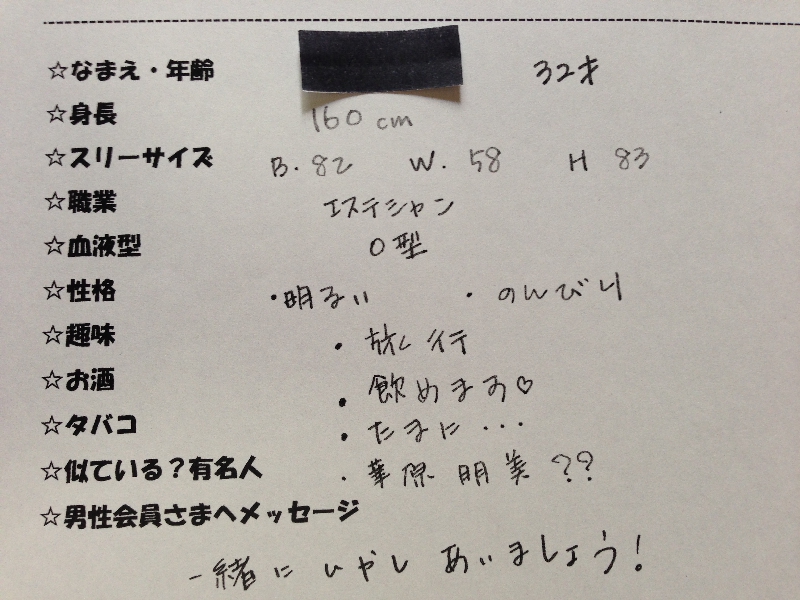 ☆なまえ・年齢 32才
☆身長 160cm
☆スリーサイズ B.82 W.58 H 83
☆職業 エステシャン
☆血液型 O型
☆性格 ・明るい ・のんびり
☆趣味 ・旅行
☆お酒 ・飲めます♡
☆タバコ ・たまに・・・
☆似ている?有名人 ・華原明美??
☆男性会員さまへメッセージ
一緒にいやしあいましょう!